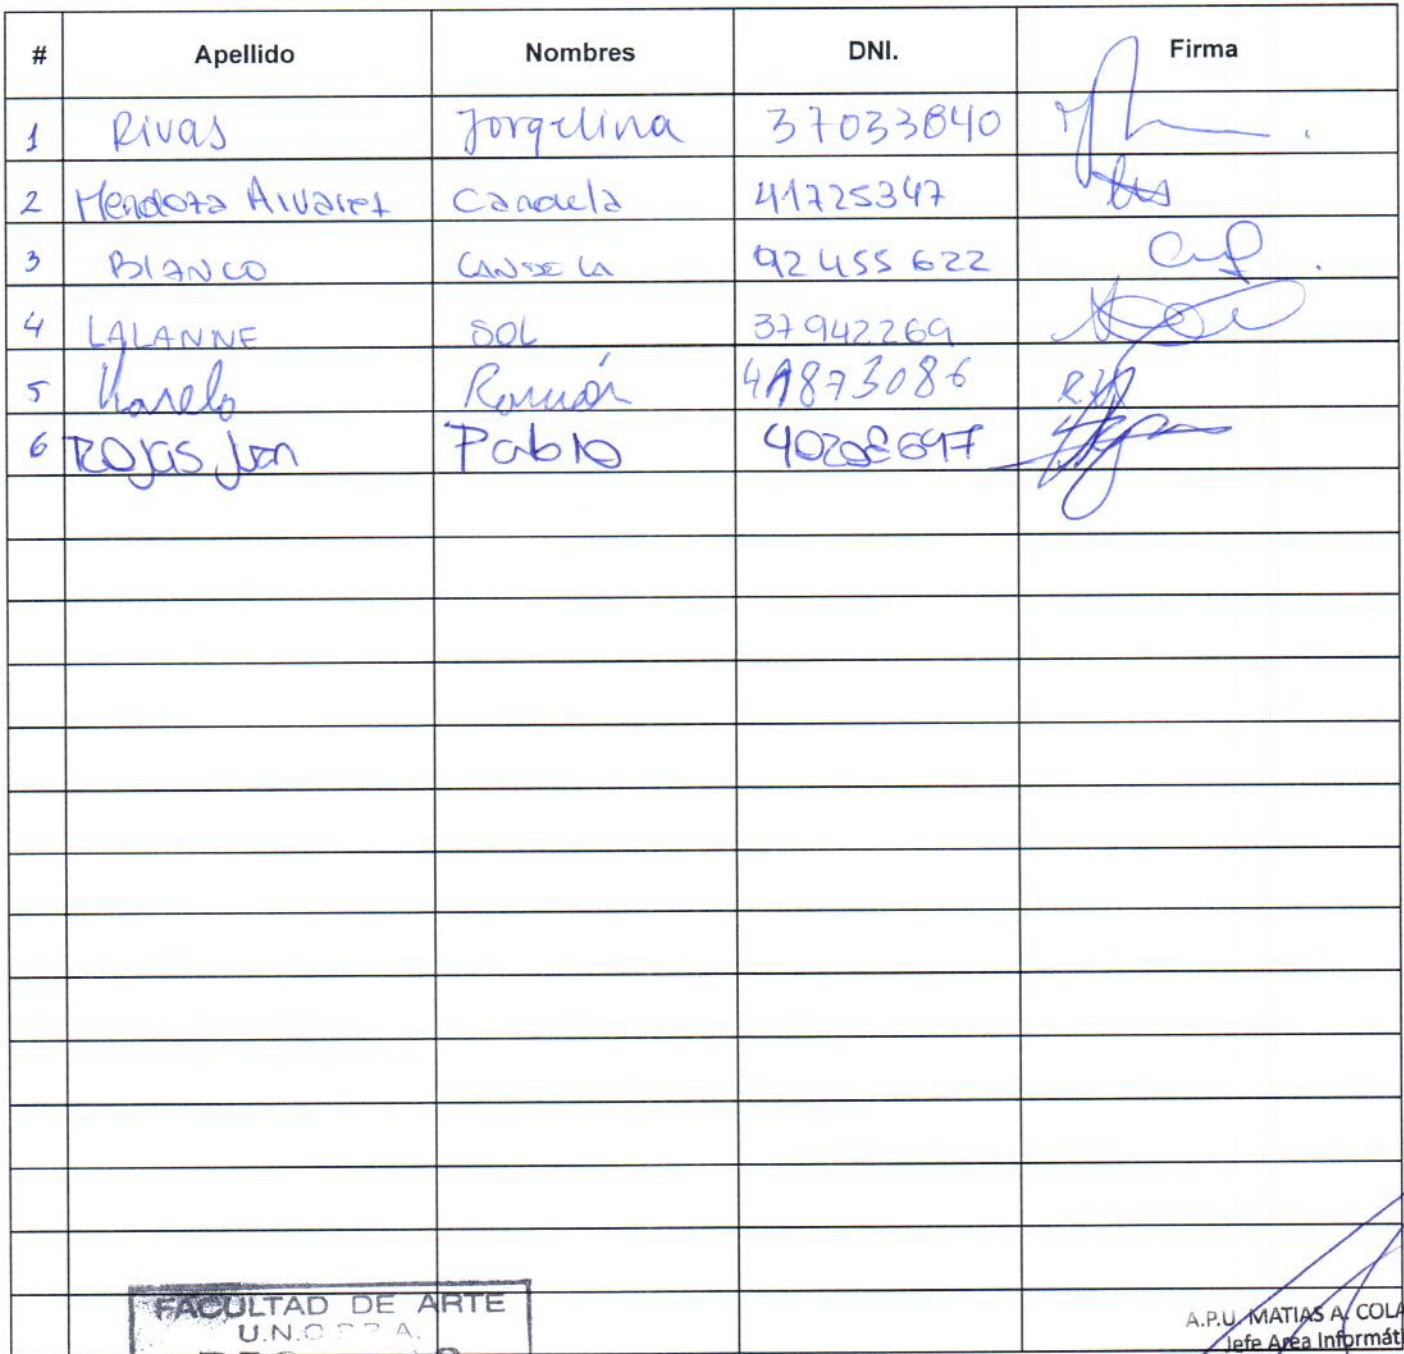 # Apellido Nombres DNI. Firma
1 Rivas Jorgelina 37033840
2 Mendoza Alvarez Candela 41725347
3 BLANCO CANDELA 92455622
4 LALANNE SOL 37942269
5 Varelo Román 41873086
6 Rojas Juan Pablo
FACULTAD DE ARTE
A.P.U. MATIAS A. COLA
Jefe Area Informáti